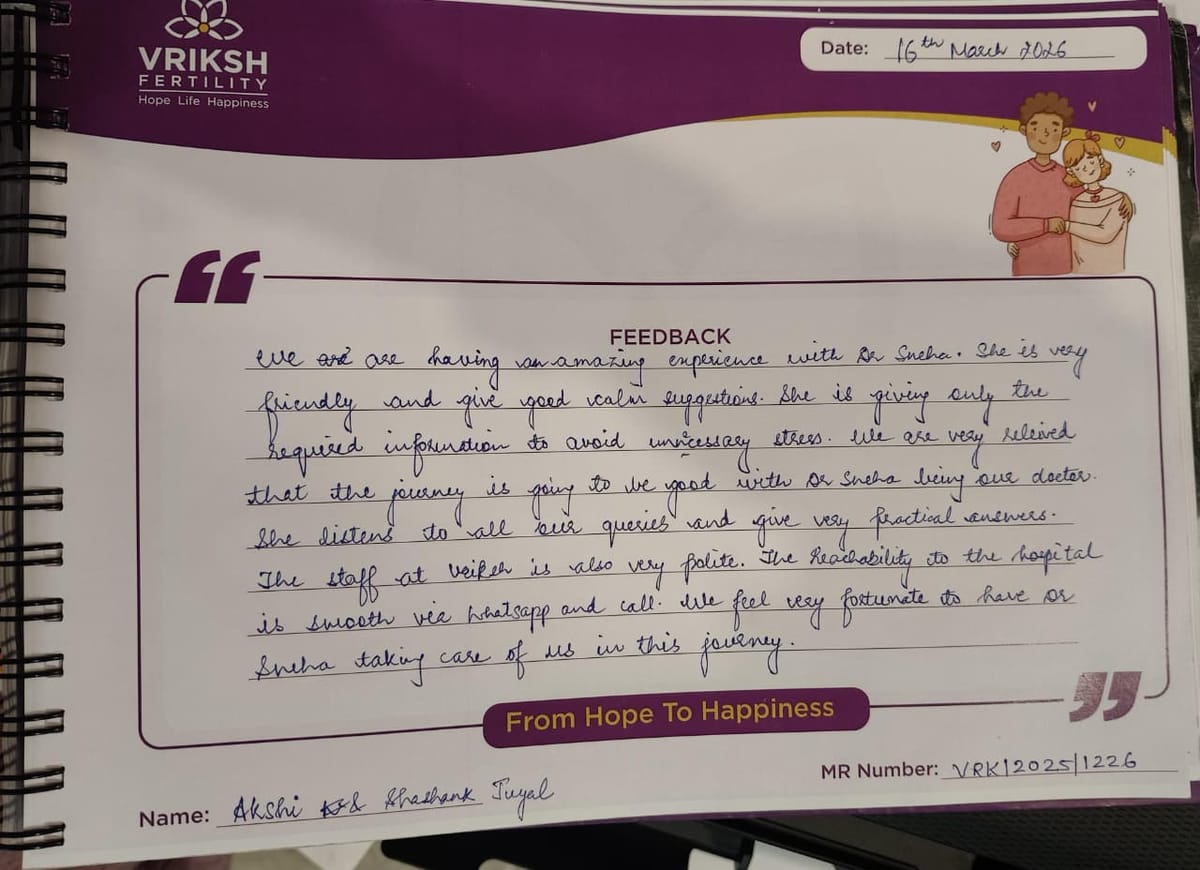 VRIKSH
FERTILITY
Hope Life Happiness
Date: 16th March 2026
FEEDBACK
We are are having an amazing experience with Dr Sneha. She is very
friendly and give good calm suggestions. She is giving only the
required information to avoid unnecessary stress. We are very releived
that the journey is going to be good with Dr Sneha being our doctor.
She listens to all our queries and give very practical answers.
The staff at Vriksh is also very polite. The Reachability to the hospital
is smooth via whatsapp and call. We feel very fortunate to have Dr
Sneha taking care of us in this journey.
From Hope To Happiness
MR Number: VRK|2025|1226
Name: Akshi & Shashank Juyal